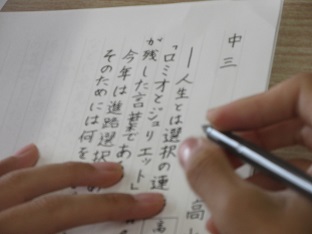 中三
高
――人生とは選択の連
「ロミオとジュリエット」
が残した言葉である
今年は進路選択
そのためには何を